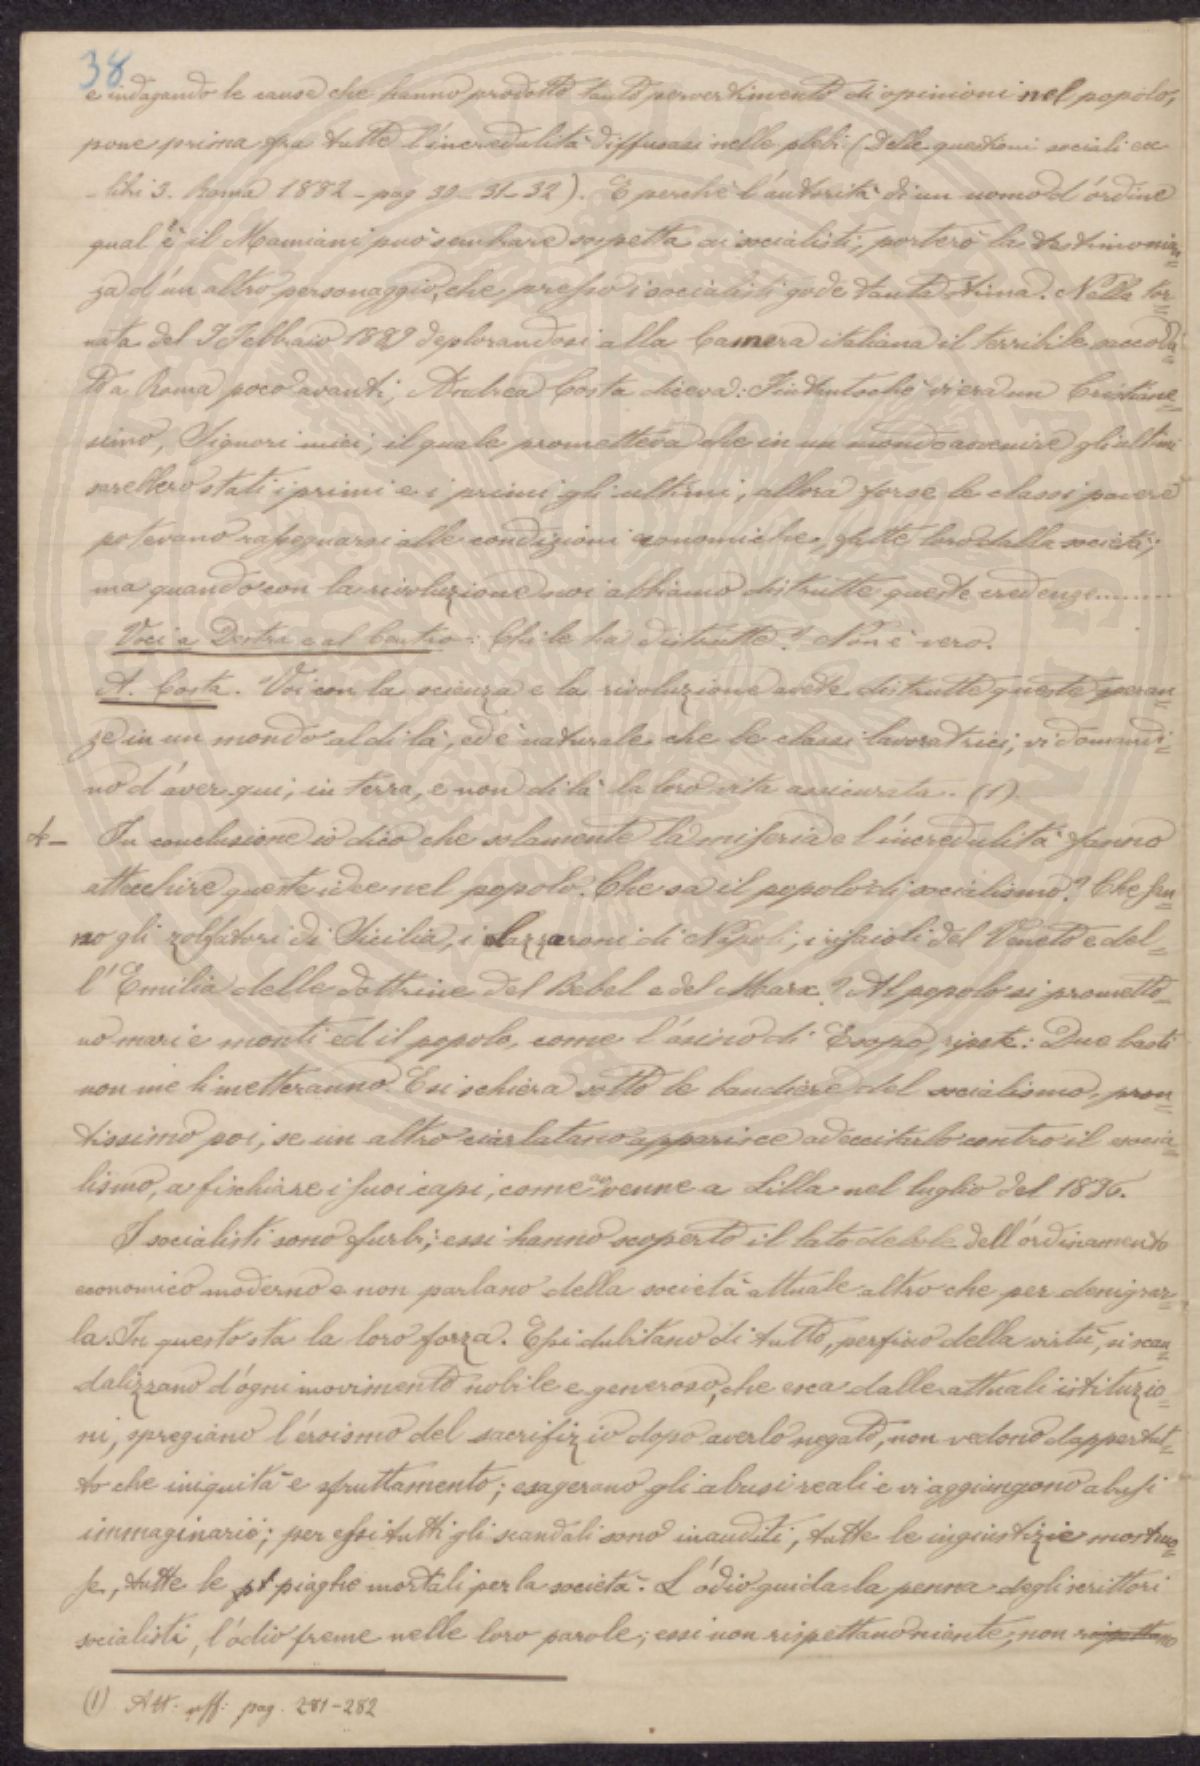 38
e indagando le cause che hanno prodotto tanto pervertimento di opinioni nel popolo,
pone prima fra tutte l'incredulità diffusasi nelle plebi (Delle questioni sociali ecc
libri 3. Roma 1882 - pag 30-31-32). E perchè l'autorità di un uomo d'ordine
qual'è il Mamiani può sembrare sospetta ai socialisti, porterò la testimonian=
za d'un altro personaggio, che presso i socialisti gode tanta stima. Nella tor=
nata del 7 Febbraio 1889 deplorandosi alla Camera italiana il terribile accadu=
to a Roma poco avanti, Andrea Costa diceva: Fintantochè vi era un Cristiane=
simo, Signori miei, il quale prometteva che in un mondo avvenire gli ultimi
sarebbero stati i primi e i primi gli ultimi, allora forse le classi povere
potevano rassegnarsi alle condizioni economiche, fatte loro dalla società;
ma quando con la rivoluzione noi abbiamo distrutte queste credenze........
Voci a Destra e al Centro: Chi le ha distrutte? Non è vero.
A. Costa. Voi con la scienza e la rivoluzione avete distrutte queste speran=
ze in un mondo al di là, ed è naturale che le classi lavoratrici, vi domandi=
no d'aver qui, in terra, e non di là la loro vita assicurata. (1)
In conclusione io dico che solamente la miseria e l'incredulità fanno
attecchire queste idee nel popolo. Che sa il popolo di socialismo? Che san=
no gli zolfatori di Sicilia, i Lazzaroni di Napoli, i risaioli del Veneto e del=
l'Emilia delle dottrine del Bebel e del Marx? Al popolo si prometto=
no mari e monti ed il popolo, come l'asino di Esopo, ripete: Due basti
non me li metteranno. E si schiera sotto le bandiere del socialismo, pron=
tissimo poi, se un altro ciarlatano apparisce ad eccitarlo contro il socia=
lismo, a fischiare i suoi capi, come avvenne a Lilla nel luglio del 1896.
I socialisti sono furbi; essi hanno scoperto il lato debole dell'ordinamento
economico moderno e non parlano della società attuale altro che per denigrar=
la. In questo sta la loro forza. Essi dubitano di tutto, perfino della virtù, si scan=
dalizzano d'ogni movimento nobile e generoso, che esca dalle attuali istituzio=
ni, spregiano l'eroismo del sacrifizio dopo averlo negato, non vedono dappertut=
to che iniquità e sfruttamento; esagerano gli abusi reali e vi aggiungono abusi
immaginarii; per essi tutti gli scandali sono inauditi, tutte le ingiustizie mostruo=
se, tutte le pi piaghe mortali per la società. L'odio guida la penna degli scrittori
socialisti, l'odio freme nelle loro parole; essi non rispettano niente, non rispettano
(1) Att. uff: pag. 281-282